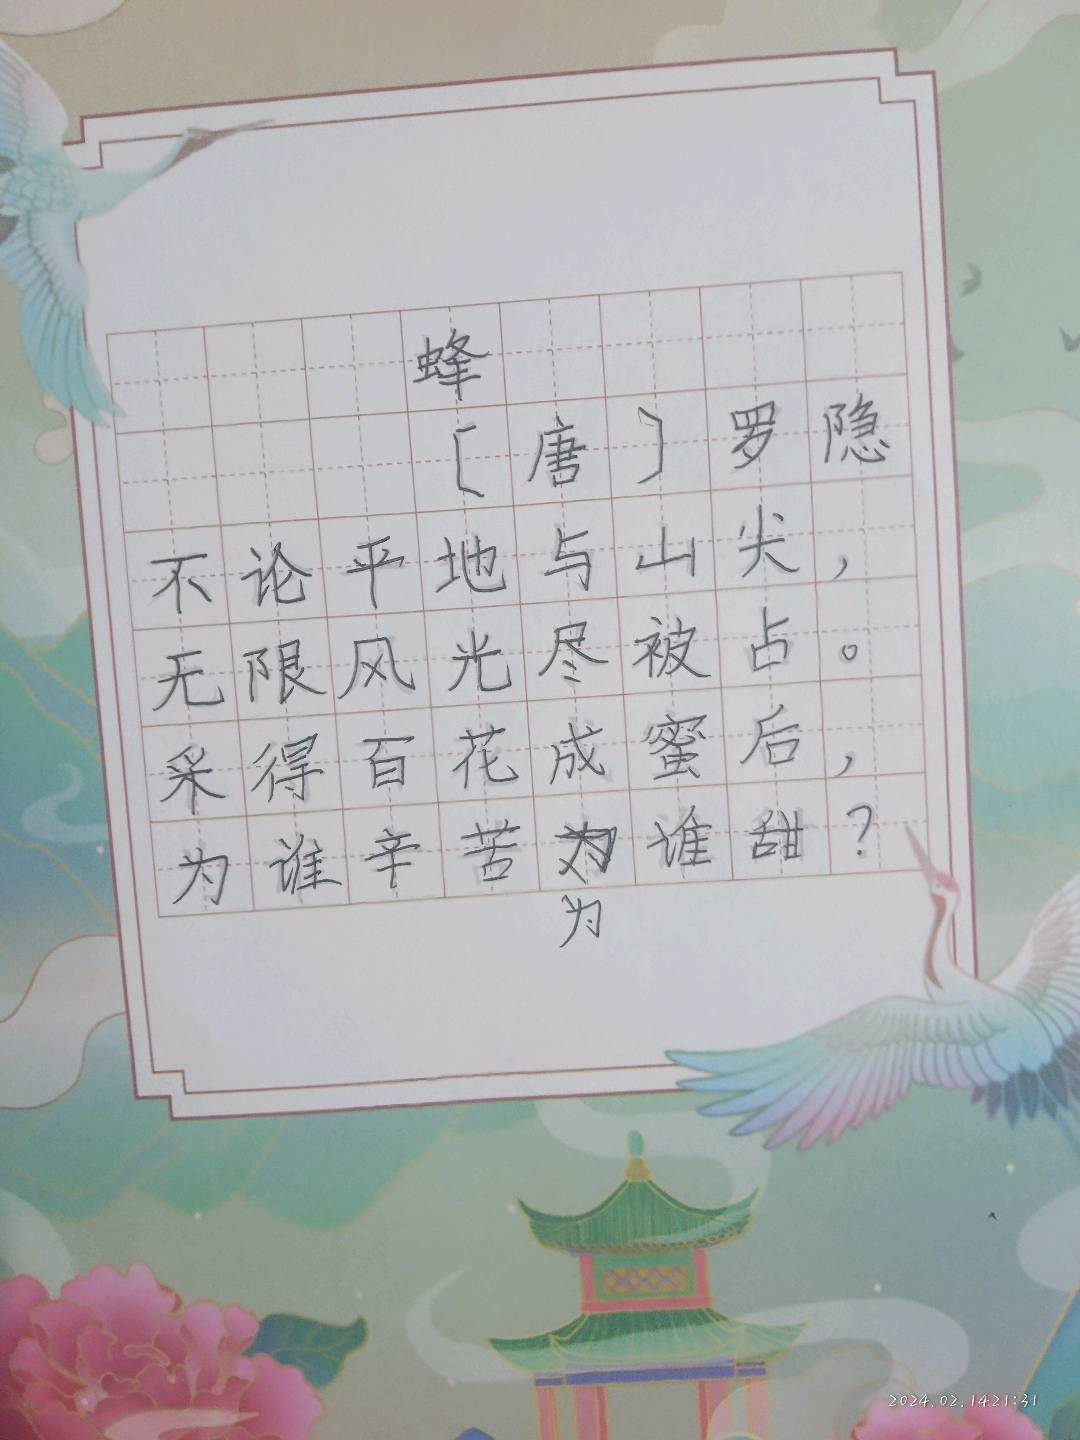 蜂
〔唐〕罗隐
不论平地与山尖，
无限风光尽被占。
采得百花成蜜后，
为谁辛苦为谁甜？
为
2024.02.1421:31